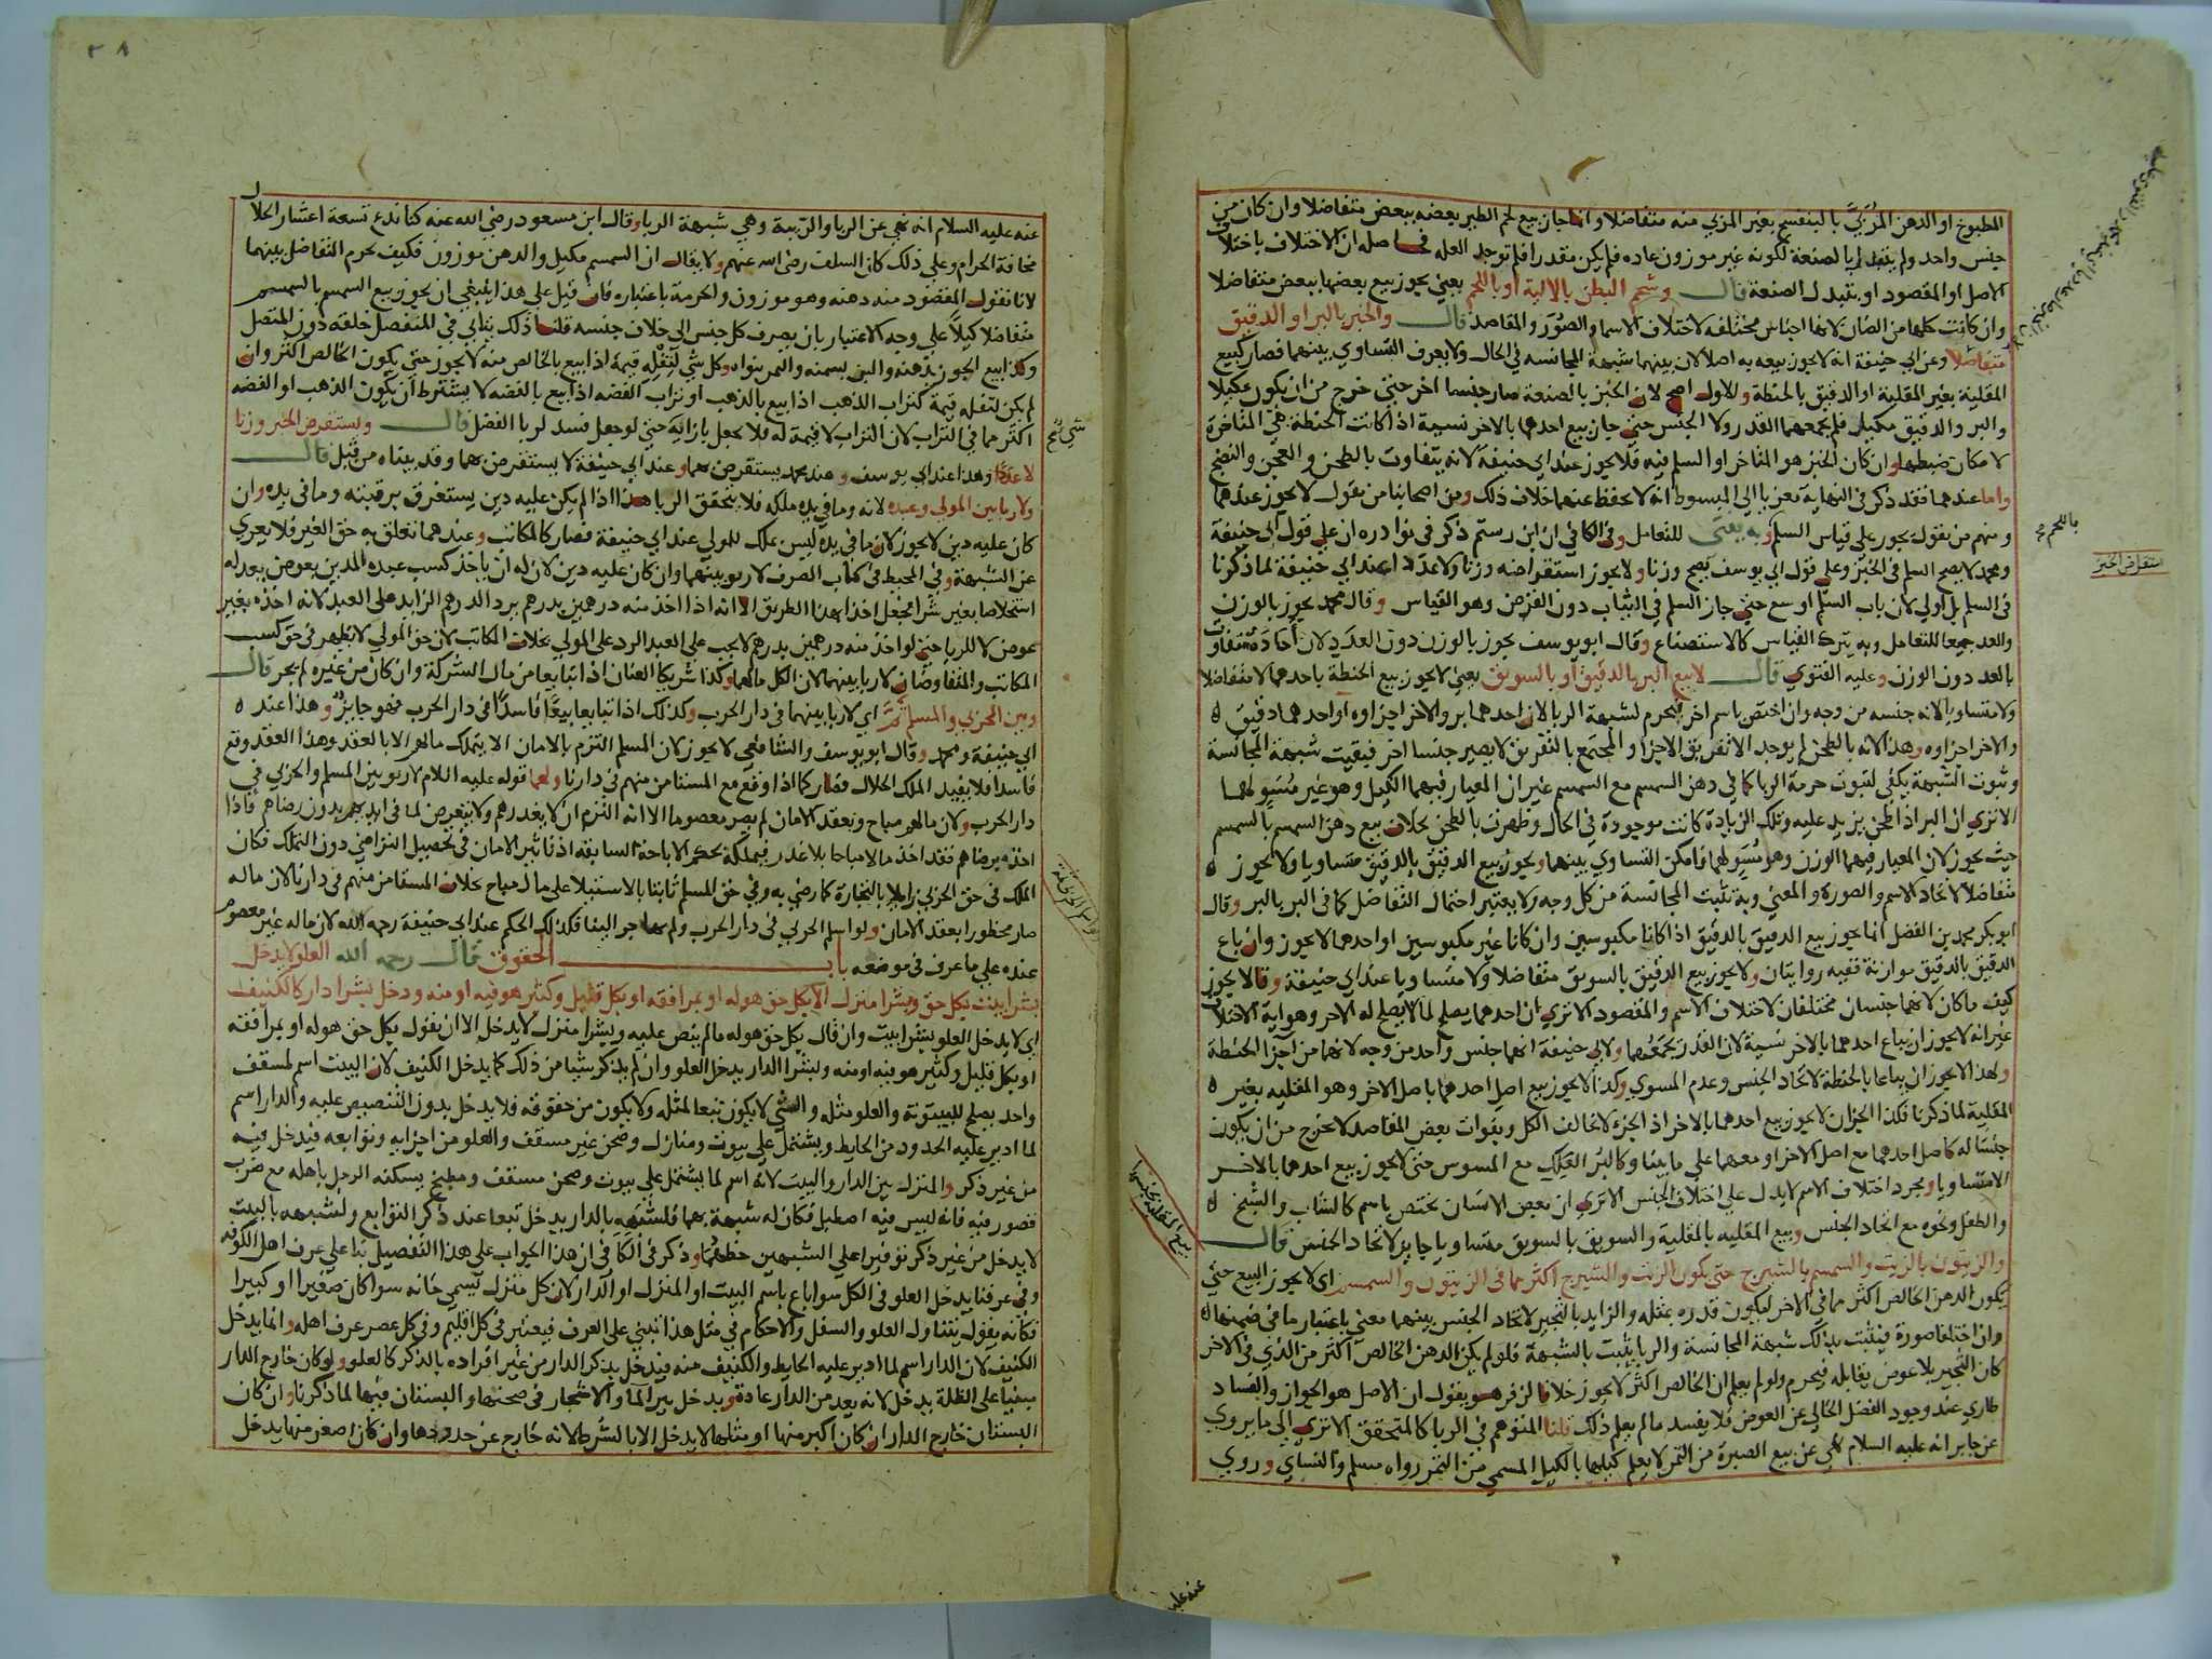 المطبوخ او الدهن المُرَبَّي بالبنفسج بغير المربي منه متفاضلا وانما جاز بيع لحم الطير بعضه ببعض متفاضلا وان كان من
جنس واحد ولم يتبدل بالصنعة لكونه غير موزون عاده فلم يكن مقدرا فلم توجد العله فحاصله ان الاختلاف باختلاف
الاصل او المقصود او بتبدل الصنعة قال وشحم البطن بالالية او باللحم يعني يجوز بيع بعضها ببعض متفاضلا
وان كانت كلها من الضان لانها اجناس مختلفه لاختلاف الاسما والصُوَر والمقاصد قال والخبز بالبر او الدقيق
متفاضلا وعن ابي حنيفة انه لا يجوز بيعه به اصلا لان بينهما شبهة المجانسه في الحال ولا يعرف التساوي بينهما فصار كبيع
المقلية بغير المقلية او الدقيق بالحنطة والاول اصح لان الخبز بالصنعة صار جنسا اخر حتى خرج من ان يكون مكيلا
والبر والدقيق مكيل فلم يجمعهما القدر ولا الجنس حتى جاز بيع احدهما بالاخر نسية اذا كانت الحنطة هي المتاخرة
لامكان ضبطها وان كان الخبز هو المتاخر او السلم فيه فلا يجوز عند ابي حنيفة لانه يتفاوت بالطحن والعجن والنضج
واما عندهما فقد ذكر في النهاية معزيا الى المبسوط انه لا يحفظ عنهما خلاف ذلك ومن اصحابنا من يقول لا يجوز عندهما
ومنهم من يقول يجوز على قياس السلم وبه يفتى للتعامل وفي الكافي ان ابن رستم ذكر في نوادره ان على قول ابي حنيفة
ومحمد لا يصح السلم في الخبز وعلى قول ابي يوسف يصح وزنا ولا يجوز استقراضه وزنا ولا عددا عند ابي حنيفة لما ذكرنا
في السلم بل اولى لان باب السلم اوسع حتى جاز السلم في الثياب دون القرض وهو القياس وقال محمد يجوز بالوزن
والعد جميعا للتعامل وبه يترك القياس كالاستصناع وقال ابو يوسف يجوز بالوزن دون العدد لان آحاده تتفاوت
بالعد دون الوزن وعليه الفتوي قال لا بيع البر بالدقيق او بالسويق يعني لا يجوز بيع الحنطة باحدهما لا متفاضلا
ولا متساويا لانه جنسه من وجه وان اختص باسم اخر فيحرم لشبهة الربا لان احدهما بر والاخر اجزاوه او احدهما دقيق
والاخر اجزاوه وهذا لانه بالطحن لم يوجد الا تفريق الاجزا والمجتمع بالتفريق لا يصير جنسا اخر فبقيت شبهة المجانسة
وثبوت الشبهة يكفي لثبوت حرمة الربا كما في دهن السمسم مع السمسم غير ان المعيار فيهما الكيل وهو غير مُسَوٍ لهما
الا ترى ان البر اذا طحن يزيد عليه وتلك الزيادة كانت موجودة في الحال وظهرت بالطحن بخلاف بيع دهن السمسم بالسمسم
حيث يجوز لان المعيار فيهما الوزن وهو مُسَوٍ لهما فامكن التساوي بينهما ويجوز بيع الدقيق بالدقيق متساويا ولا يجوز
متفاضلا لاتحاد الاسم والصورة والمعنى وبه تثبت المجانسة من كل وجه ولا يعتبر احتمال التفاضل كما في البر بالبر وقال
ابو بكر محمد بن الفضل انما يجوز بيع الدقيق بالدقيق اذا كانا مكبوسين وان كانا غير مكبوسين او احدهما لا يجوز وان باع
الدقيق بالدقيق موازنة ففيه روايتان ولا يجوز بيع الدقيق بالسويق متفاضلا ولا متساويا عند ابي حنيفة وقالا يجوز
كيف ما كان لانهما جنسان مختلفان لاختلاف الاسم والمقصود الا ترى ان احدهما يصلح لما لا يصلح له الاخر وهو اية الاختلاف
غير انه لا يجوز ان يباع احدهما بالاخر نسية لان القدر يجمعهما ولابي حنيفة انهما جنس واحد من وجه لانهما من اجزا الحنطة
ولهذا لا يجوز ان يباعا بالحنطة لاتحاد الجنس وعدم المسوي وكذا لا يجوز بيع اصل احدهما باصل الاخر وهو المقلية بغير
المقلية لما ذكرنا فكذا الجزان لا يجوز بيع احدهما بالاخر اذ الجزء لا يخالف الكل وبفوات بعض المقاصد لا يخرج من ان يكون
جنسا له كاصل احدهما مع اصل الاخر او معهما على ما بينا وكالبر العلك مع المسوس حتى لا يجوز بيع احدهما بالاخر
الا متساويا ومجرد اختلاف الاسم لا يدل على اختلاف الجنس الا ترى ان بعض الانسان يختص باسم كالشاب والشيخ
والطفل ونحوه مع اتحاد الجنس وبيع المقليه بالمقلية والسويق بالسويق متساويا جايز لاتحاد الجنس قال
والزيتون بالزيت والسمسم بالشيرج حتى يكون الزيت والشيرج اكثر مما في الزيتون والسمسم اي لا يجوز البيع حتى
يكون الدهن الخالص اكثر مما في الاخر ليكون قدره بمثله والزايد بالثجير لاتحاد الجنس بينهما معنى باعتبار ما في ضمنها
وان اختلفا صورة فيثبت بذلك شبهة المجانسة والربا يثبت بالشبهة فلو لم يكن الدهن الخالص اكثر من الذي في الاخر
كان الثجير بلا عوض يقابله فيحرم ولو لم يعلم ان الخالص اكثر لا يجوز خلافا لزفر هو يقول ان الاصل هو الجواز والفساد
طاري عند وجود الفضل الخالي عن العوض فلا يفسد ما لم يعلم ذلك قلنا المتوهم في الربا كالمتحقق الا ترى الى ما يروي
عن جابر انه عليه السلام نهى عن بيع الصبرة من التمر لا يعلم كيلها بالكيل المسمى من التمر رواه مسلم والنساي وروي
باللحم
استقراض الخبز
بيع المقلية بجنسها
عنه عليه
٣٨
عنه عليه السلام انه نهى عن الربا والريبة وهي شبهة الربا وقال ابن مسعود رضي الله عنه كنا ندع تسعة اعشار الحلال
مخافة الحرام وعلى ذلك كان السلف رضى الله عنهم ولا يقال ان السمسم مكيل والدهن موزون فكيف يحرم التفاضل بينهما
لانا نقول المقصود منه دهنه وهو موزون والحرمة باعتباره فان قيل على هذا ينبغي ان يجوز بيع السمسم بالسمسم
متفاضلا كيلا على وجه الاعتبار بان يصرف كل جنس الى خلاف جنسه قلنا ذلك يتاتي في المنفصل خلقه دون المتصل
وكذا بيع الجوز بدهنه واللبن بسمنه والتمر بنواه وكل شي لثفله قيمة اذا بيع بالخالص منه لا يجوز حتى يكون الخالص اكثر وان
لم يكن لثفله قيمة كتراب الذهب اذا بيع بالذهب او تراب الفضه اذا بيع بالفضه لا يشترط ان يكون الذهب او الفضه
اكثر مما في التراب لان التراب لا قيمة له فلا يجعل بازايه حتى لو جعل فسد لربا الفضل قال ويستقرض الخبز وزنا
لا عددا وهذا عند ابي يوسف وعند محمد يستقرض بهما وعند ابي حنيفة لا يستقرض بهما وقد بيناه من قبل قال
ولا ربا بين المولى وعبده لانه وما في يده ملكه فلا يتحقق الربا هذا اذا لم يكن عليه دين يستغرق برقبته وما في يده وان
كان عليه دين لا يجوز لان ما في يده ليس ملك للمولي عند ابي حنيفة فصار كالمكاتب وعندهما تعلق به حق الغير فلا يعرى
عن الشبهة وفي المحيط في كتاب الصرف لا ربو بينهما وان كان عليه دين لان له ان ياخذ كسب عبده المدين بعوض يعدله
استخلاصا بغير شرا فجعل اخذا بهذا الطريق الا انه اذا اخذ منه درهمين بدرهم يرد الدرهم الزايد على العبد لانه اخذه بغير
عوض لا للربا حتى لو اخذ منه درهمين بدرهم لا يجب على العبد الرد على المولى بخلاف المكاتب لان حق المولى لا يظهر في حق كسب
المكاتب والمتفاوضان لا ربا بينهما لان الكل مالهما وكذا شريكا العنان اذا تبايعا من مال الشركة وان كان من غيره لم يجز قال
وبين الحربي والمسلم ثمَّ اي لا ربا بينهما في دار الحرب وكذلك اذا تبايعا بيعا فاسدا في دار الحرب فهو جايز وهذا عند
ابي حنيفة ومحمد وقال ابو يوسف والشافعي لا يجوز لان المسلم التزم بالامان الا يتملك مالهم الا بالعقد وهذا العقد وقع
فاسدا فلا يفيد الملك الحلال فصار كما اذا وقع مع المستامن منهم في دارنا ولهما قوله عليه السلام لا ربو بين المسلم والحربي في
دار الحرب ولان مالهم مباح وبعقد الامان لم يصر معصوما الا انه التزم ان لا يغدرهم ولا يتعرض لما في ايديهم بدون رضاهم فاذا
اخذه برضاهم فقد اخذ مالا مباحا بلا غدر فيملكه بحكم الاباحة السابقه اذ تاثير الامان في تحصيل التراضي دون التملك فكان
الملك في حق الحربي زايلا بالتجارة كما رضي به وفي حق المسلم ثابتا بالاستيلا على مال مباح بخلاف المستامن منهم في دارنا لان ماله
صار محظورا بعقد الامان ولو اسلم الحربي في دار الحرب ولم يهاجر الينا فكذلك الحكم عند ابي حنيفة رحمه الله لان ماله غير معصوم
عنده على ما عرف في موضعه باب الحقوق قال رحمه الله العلو لا يدخل
بشرا بيت بكل حق وبشرا منزل الا بكل حق هو له او بمرافقه او بكل قليل وكثير هو فيه او منه ودخل بشرا دار كالكنيف
اي لا يدخل العلو بشرا بيت وان قال بكل حق هو له ما لم ينص عليه وبشرا منزل لا يدخل الا ان يقول بكل حق هو له او بمرافقه
او بكل قليل وكثير هو فيه او منه وبشرا الدار يدخل العلو وان لم يذكر شيا من ذلك كما يدخل الكنيف لان البيت اسم لمسقف
واحد يصلح للبيتوتة والعلو مثله والشي لا يكون تبعا لمثله ولا يكون من حقوقه فلا يدخل بدون التنصيص عليه والدار اسم
لما ادير عليه الحدود من الحايط ويشتمل على بيوت ومنازل وصحن غير مسقف والعلو من اجزايه وتوابعه فيدخل فيه
من غير ذكر والمنزل بين الدار والبيت لانه اسم لما يشتمل على بيوت وصحن مسقف ومطبخ يسكنه الرجل باهله مع ضرب
قصور فيه فانه ليس فيه اصطبل فكان له شبهة بهما فلشبهه بالدار يدخل تبعا عند ذكر التوابع ولشبهه بالبيت
لا يدخل من غير ذكر توفيرا على الشبهين حظهما وذكر في الكافي ان هذا الجواب على هذا التفصيل بنا على عرف اهل الكوفه
وفي عرفنا يدخل العلو في الكل سوا باع باسم البيت او المنزل او الدار لان كل منزل يسمى خانه سوا كان صغيرا او كبيرا
فكانه يقول يتناول العلو والسفل والاحكام في مثل هذا تبتني على العرف فيعتبر في كل اقليم وفي كل عصر عرف اهله وانما يدخل
الكنيف لان الدار اسم لما ادير عليه الحايط والكنيف منه فيدخل بذكر الدار من غير افراده بالذكر كالعلو ولو كان خارج الدار
مبنيا على الظلة يدخل لانه يعد من الدار عادة ويدخل بير الما والاشجار في صحنها والبستان فيها لما ذكرنا وان كان
البستان خارج الدار ان كان اكبر منها او مثلها لا يدخل الا بالشرط لانه خارج عن حدودها وان كان اصغر منها يدخل